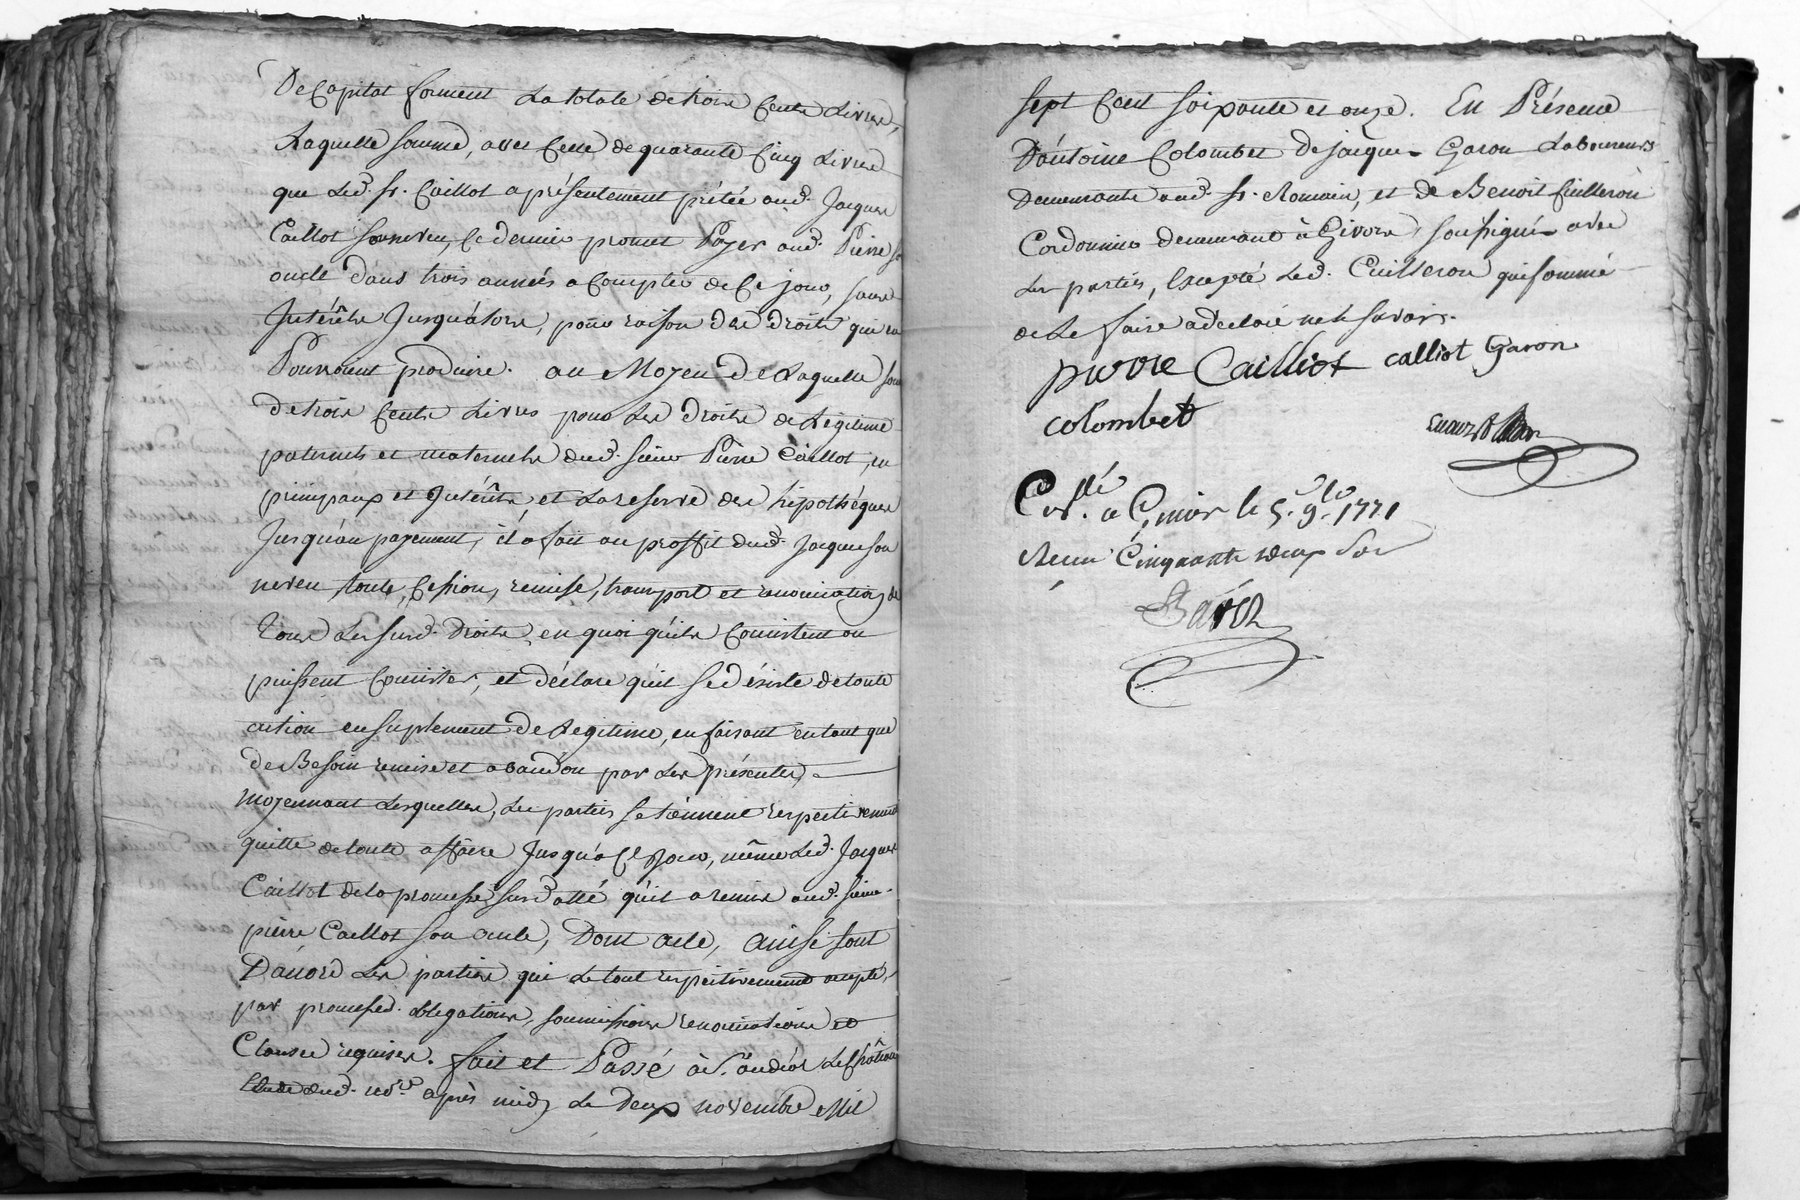 De Capital forment La totale de trois Cents Livres,
Laquelle somme, avec Celle de quarante Cinq Livres
que Led. Sr. Caillot a présentement prêtée aud. Jacques
Caillot son neveu, Ce dernier promet Payer aud. Pierre so
oncle dans trois années a Compter de Ce jour, sans
Intérêts Jusqu'alors, pour raison des droits qui en
Pourroient produire. au Moyen De Laquelle som
de trois Cents Livres pour Les Droits de Légitime
paternels et maternels dud. sieur Pierre Caillot, en
principaux et Intérêts, et La reserve des hipothéques
Jusqu'au payement, il a fait au proffit dud. Jacques son
neveu, toute Cession, remise, transport et renonciation de
Tous Les susd. Droits, en quoi qu'ils Consistent ou
puissent Consister, et déclare qu'il se désiste de toute
action en suplement De Legitime, en faisant en tant que
de Besoin remise et abandon par Les présentes,
moyennant Lesquelles, Les parties se tiennent respectivement
quitte de toute affaire Jusqu'a Ce Jour, même Led. Jacques
Caillot de la promesse susdatté qu'il a remis aud. sieur
pierre Caillot son oncle, Dont acte, ainsi sont
D'accord Les parties qui Le tout respectivement accepté,
par promesse. obligations, soumissions renonciations et
Clauses requises. fait et Passé à St. andéol Le Château
Etude dud. no.re après midy Le Deux novembre Mil
sept Cent soixante et onze. En Présence
D'antoine Colombet De jacques Garon Laboureurs
Demeurants aud. St. Romain, et de Benoit Cuilleron
Cordonnier demeurant à Givors, soussignés avec
Les parties, Excepté Led. Cuilleron qui sommé
de Le faire a déclaré ne le savoir.
pierre Cailliot calliot Garon
colombet
Con.llé a Givors le 5. 9.bre 1771
Reçu Cinquante deux sols